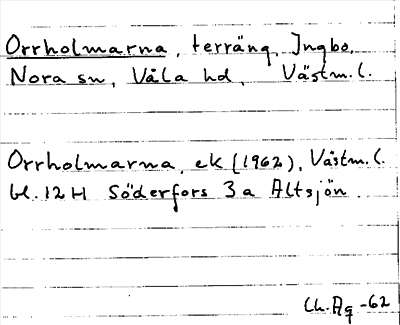 Orrholmarna, terräng, Ingbo,
Nora sn, Våla hd, Västm. l.
Orrholmarna, ek (1962), Västm. l.
bl. 12 H Söderfors 3 a Altsjön.
Ch. Ag -62